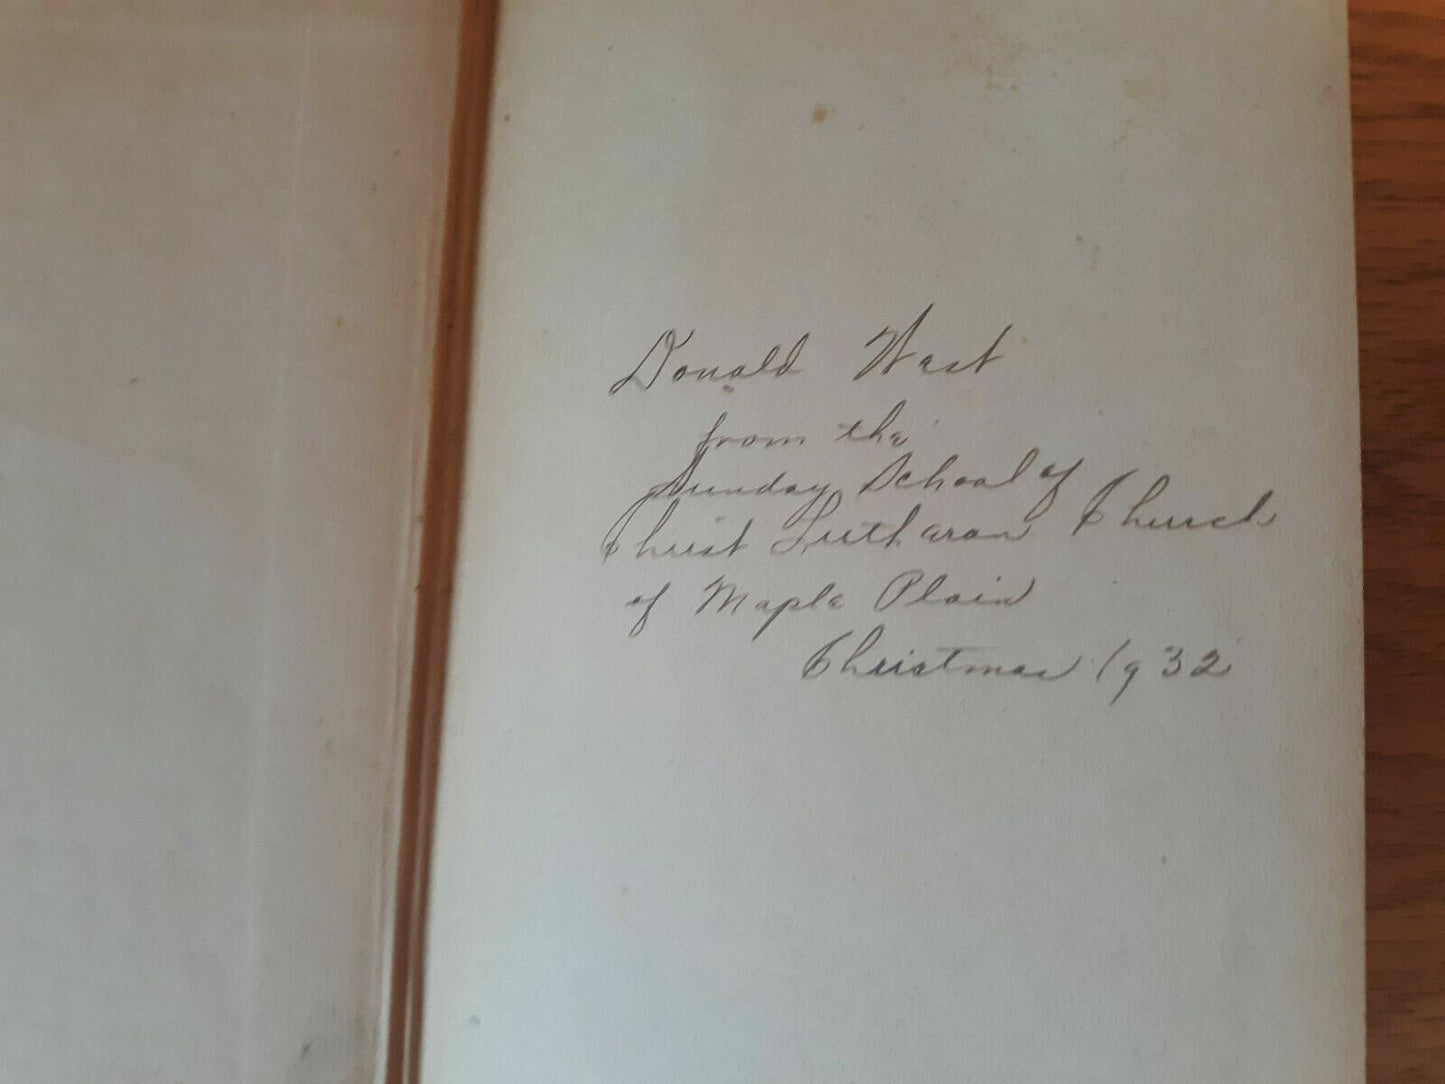 Donald West
from the
Sunday School of
Christ Lutheran Church
of Maple Plain
Christmas 1932